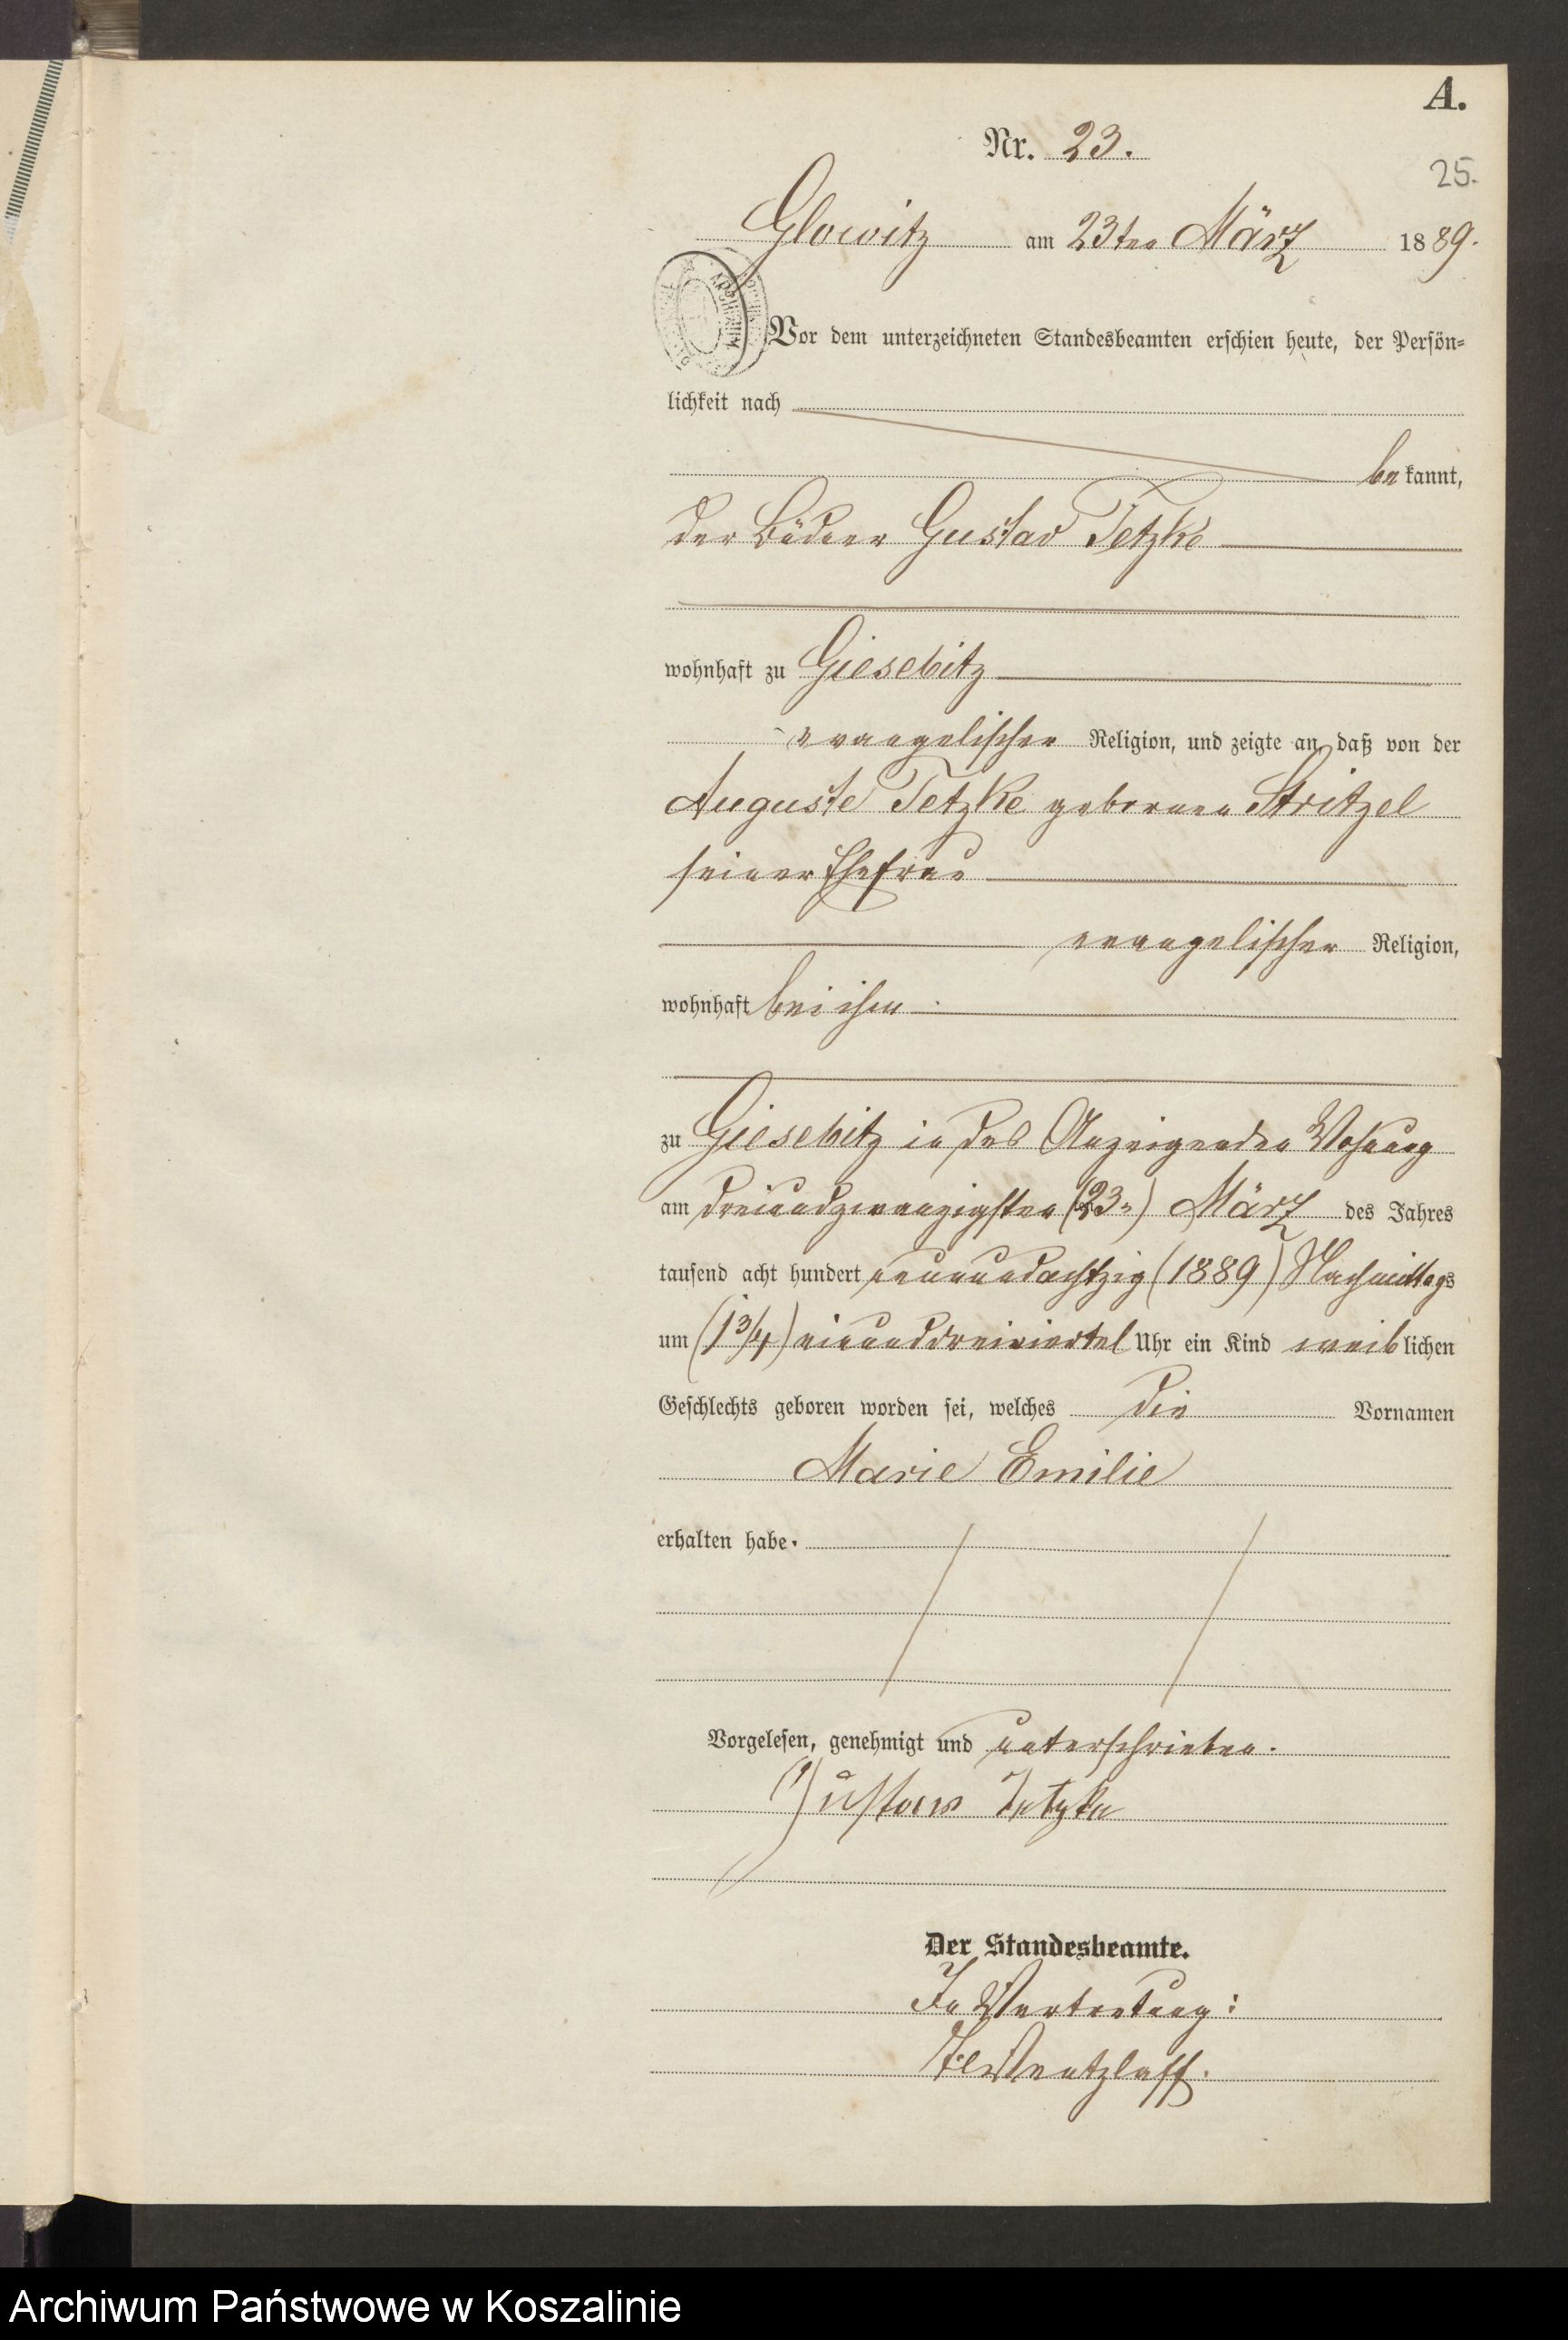 A.
Nr. 23.
25.
Glowitz am 23ten März 1889.
Vor dem unterzeichneten Standesbeamten erschien heute, der Persön-
lichkeit nach
bekannt,
der Büdner Gustav Tetzke
wohnhaft zu Giesebitz
evangelischer Religion, und zeigte an, daß von der
Auguste Tetzke geborenen Stritzel
seiner Ehefrau
evangelischer Religion,
wohnhaft bei ihm
zu Giesebitz in des Anzeigenden Wohnung
am dreiundzwanzigsten (23ten) März des Jahres
tausend acht hundert neunundachtzig (1889) Nachmittags
um (1 3/4) einunddreiviertel Uhr ein Kind weiblichen
Geschlechts geboren worden sei, welches die Vornamen
Marie Emilie
erhalten habe.
Vorgelesen, genehmigt und unterschrieben.
Gustaw Tetzke
Der Standesbeamte.
In Vertretung:
Wentzlaff.
Archiwum Państwowe w Koszalinie